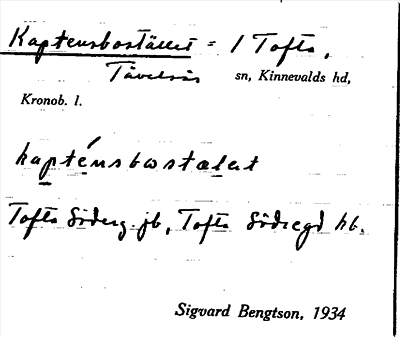 Kaptensbostället = 1 Tofta,
Tävelsås sn, Kinnevalds hd,
Kronob. l.
kapténsbostælet
Tofta Söderg. jb, Tofta Södregd hb.
Sigvard Bengtson, 1934